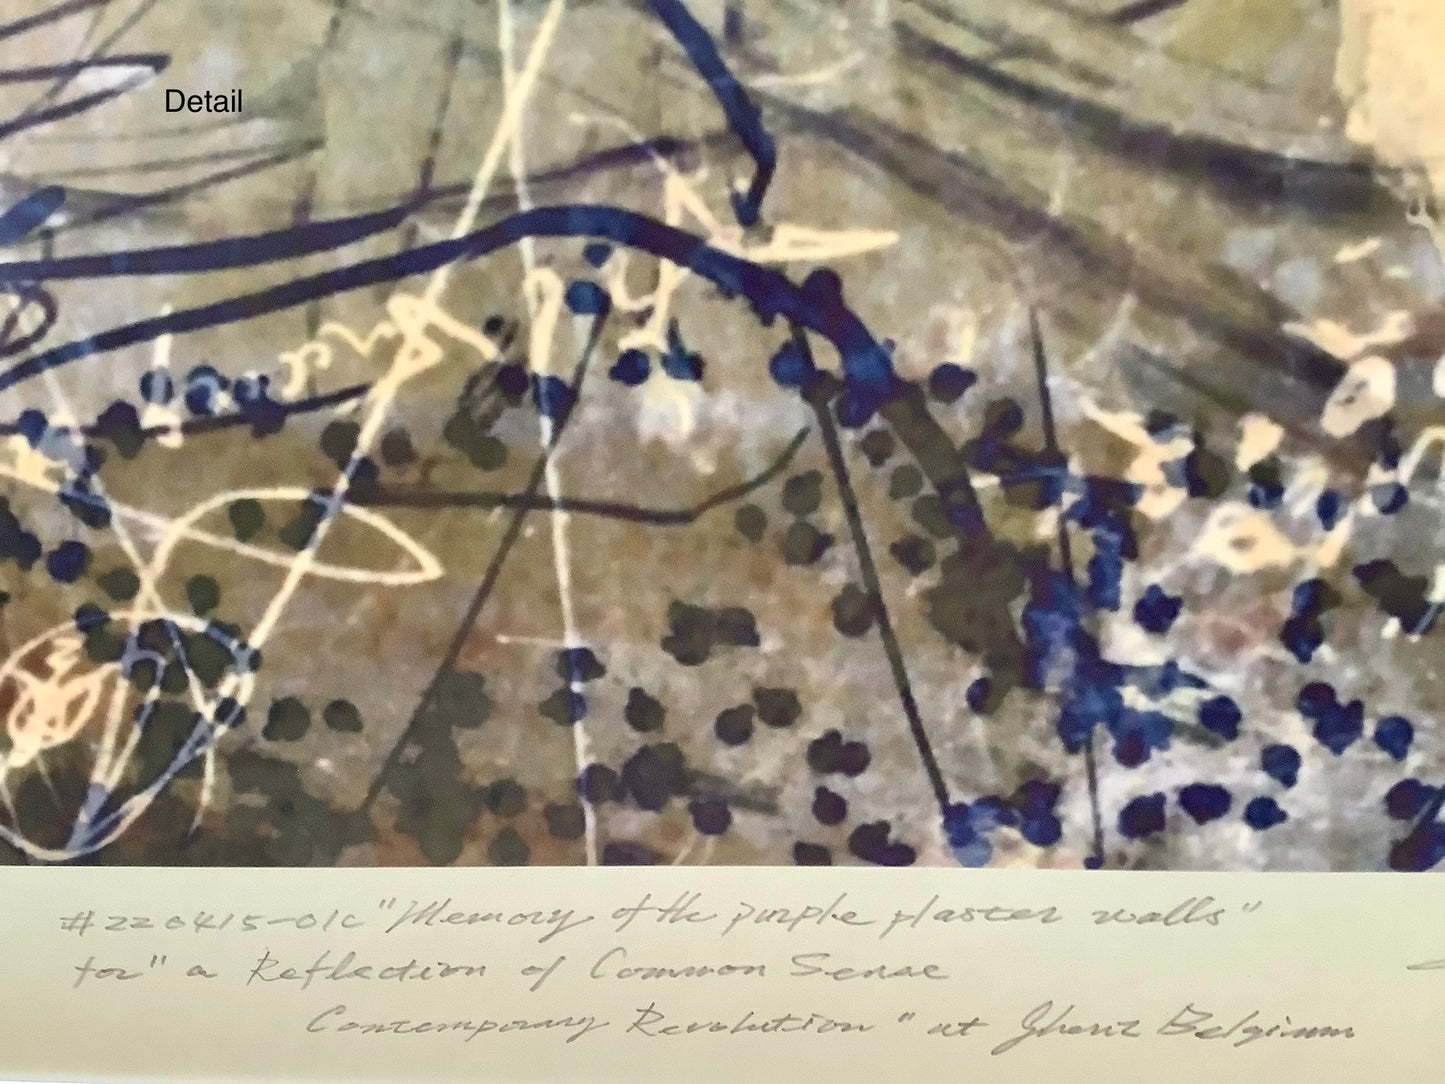 Detail
#220415-01c "Memory of the purple plaster walls"
for "a Reflection of Common Sense
Contemporary Revolution" at Ghent Belginm